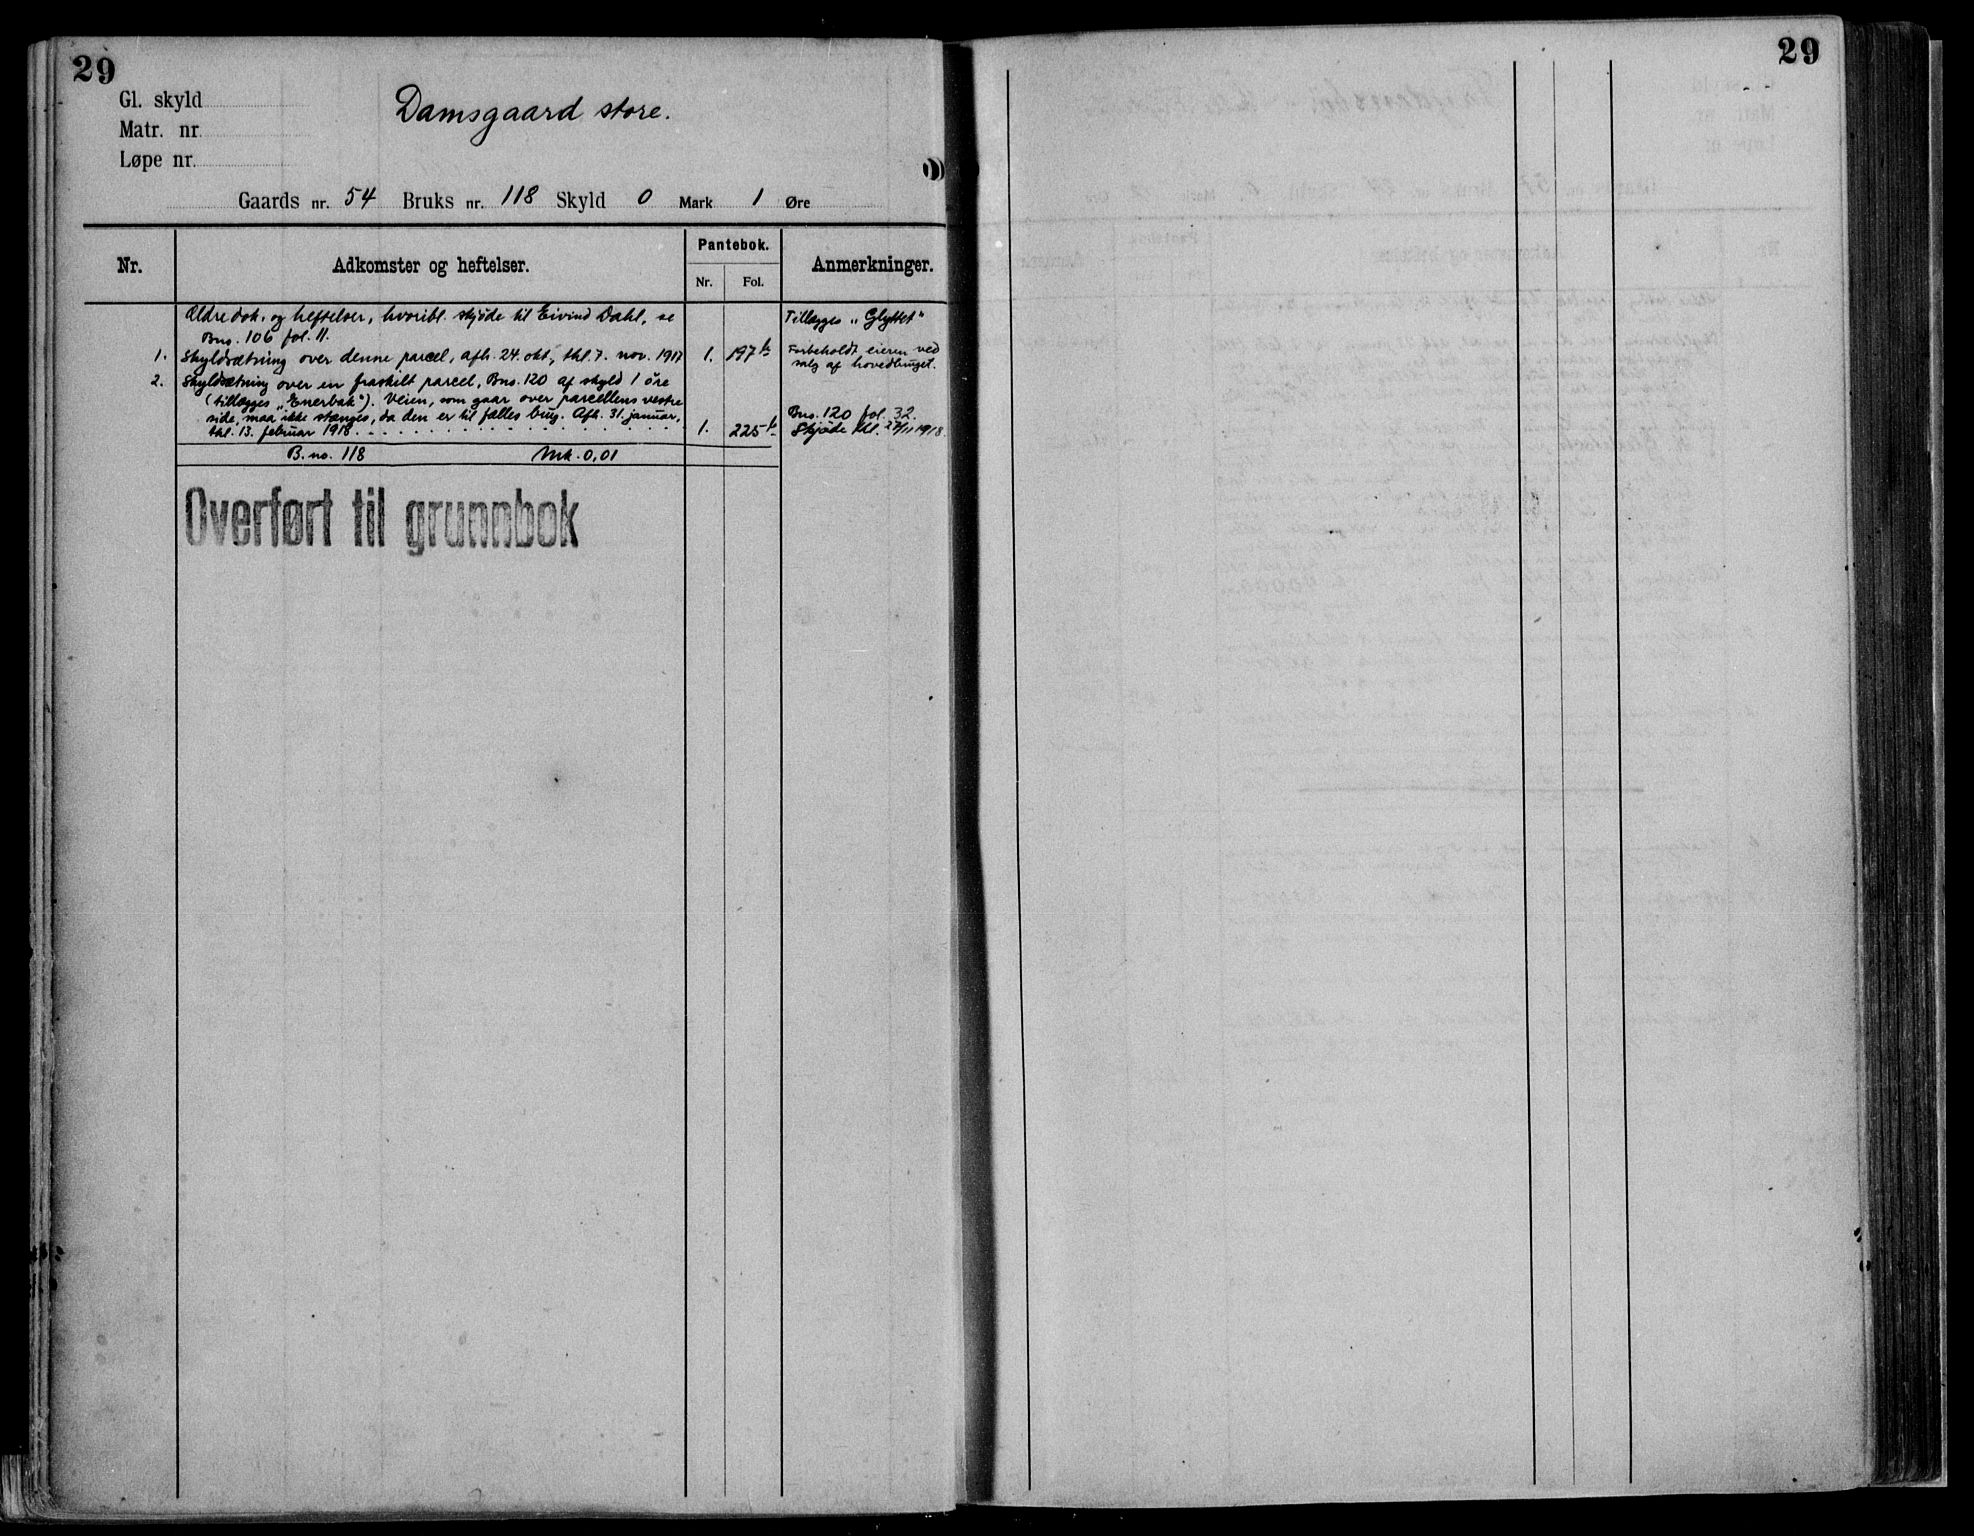 29
Gl. skyld
Matr. nr.
Løpe nr.
Damsgaard store.
Gaards nr. 54 Bruks nr. 118 Skyld 0 Mark 1 Øre
Nr. Adkomster og heftelser. Pantebok. Anmerkninger.
Nr. Fol.
Ældre dok. og heftelser, hvoribl. skjøde til Eivind Dahl, se Tillægges „Glyttet"
Bno. 106 fol. 11.
1. Skyldsætning over denne parcel, afh. 24. okt., thl. 7. nov. 1917 1. 197 b Forbeholdt eieren ved
salg af hovedbruget.
2. Skyldsætning over en fraskilt parcel, Bno. 120 af skyld 1 øre
(tillægges „Enerbak"). Veien, som gaar over parcellens vestre
side, maa ikke stænges, da den er til fælles brug. Afh. 31. januar, Bno. 120 fol. 32.
thl. 13. februar 1918. 1. 225 b Skjøde thl. 27/11 1918.
B. no. 118 Mrk. 0,01
Overført til grunnbok
29